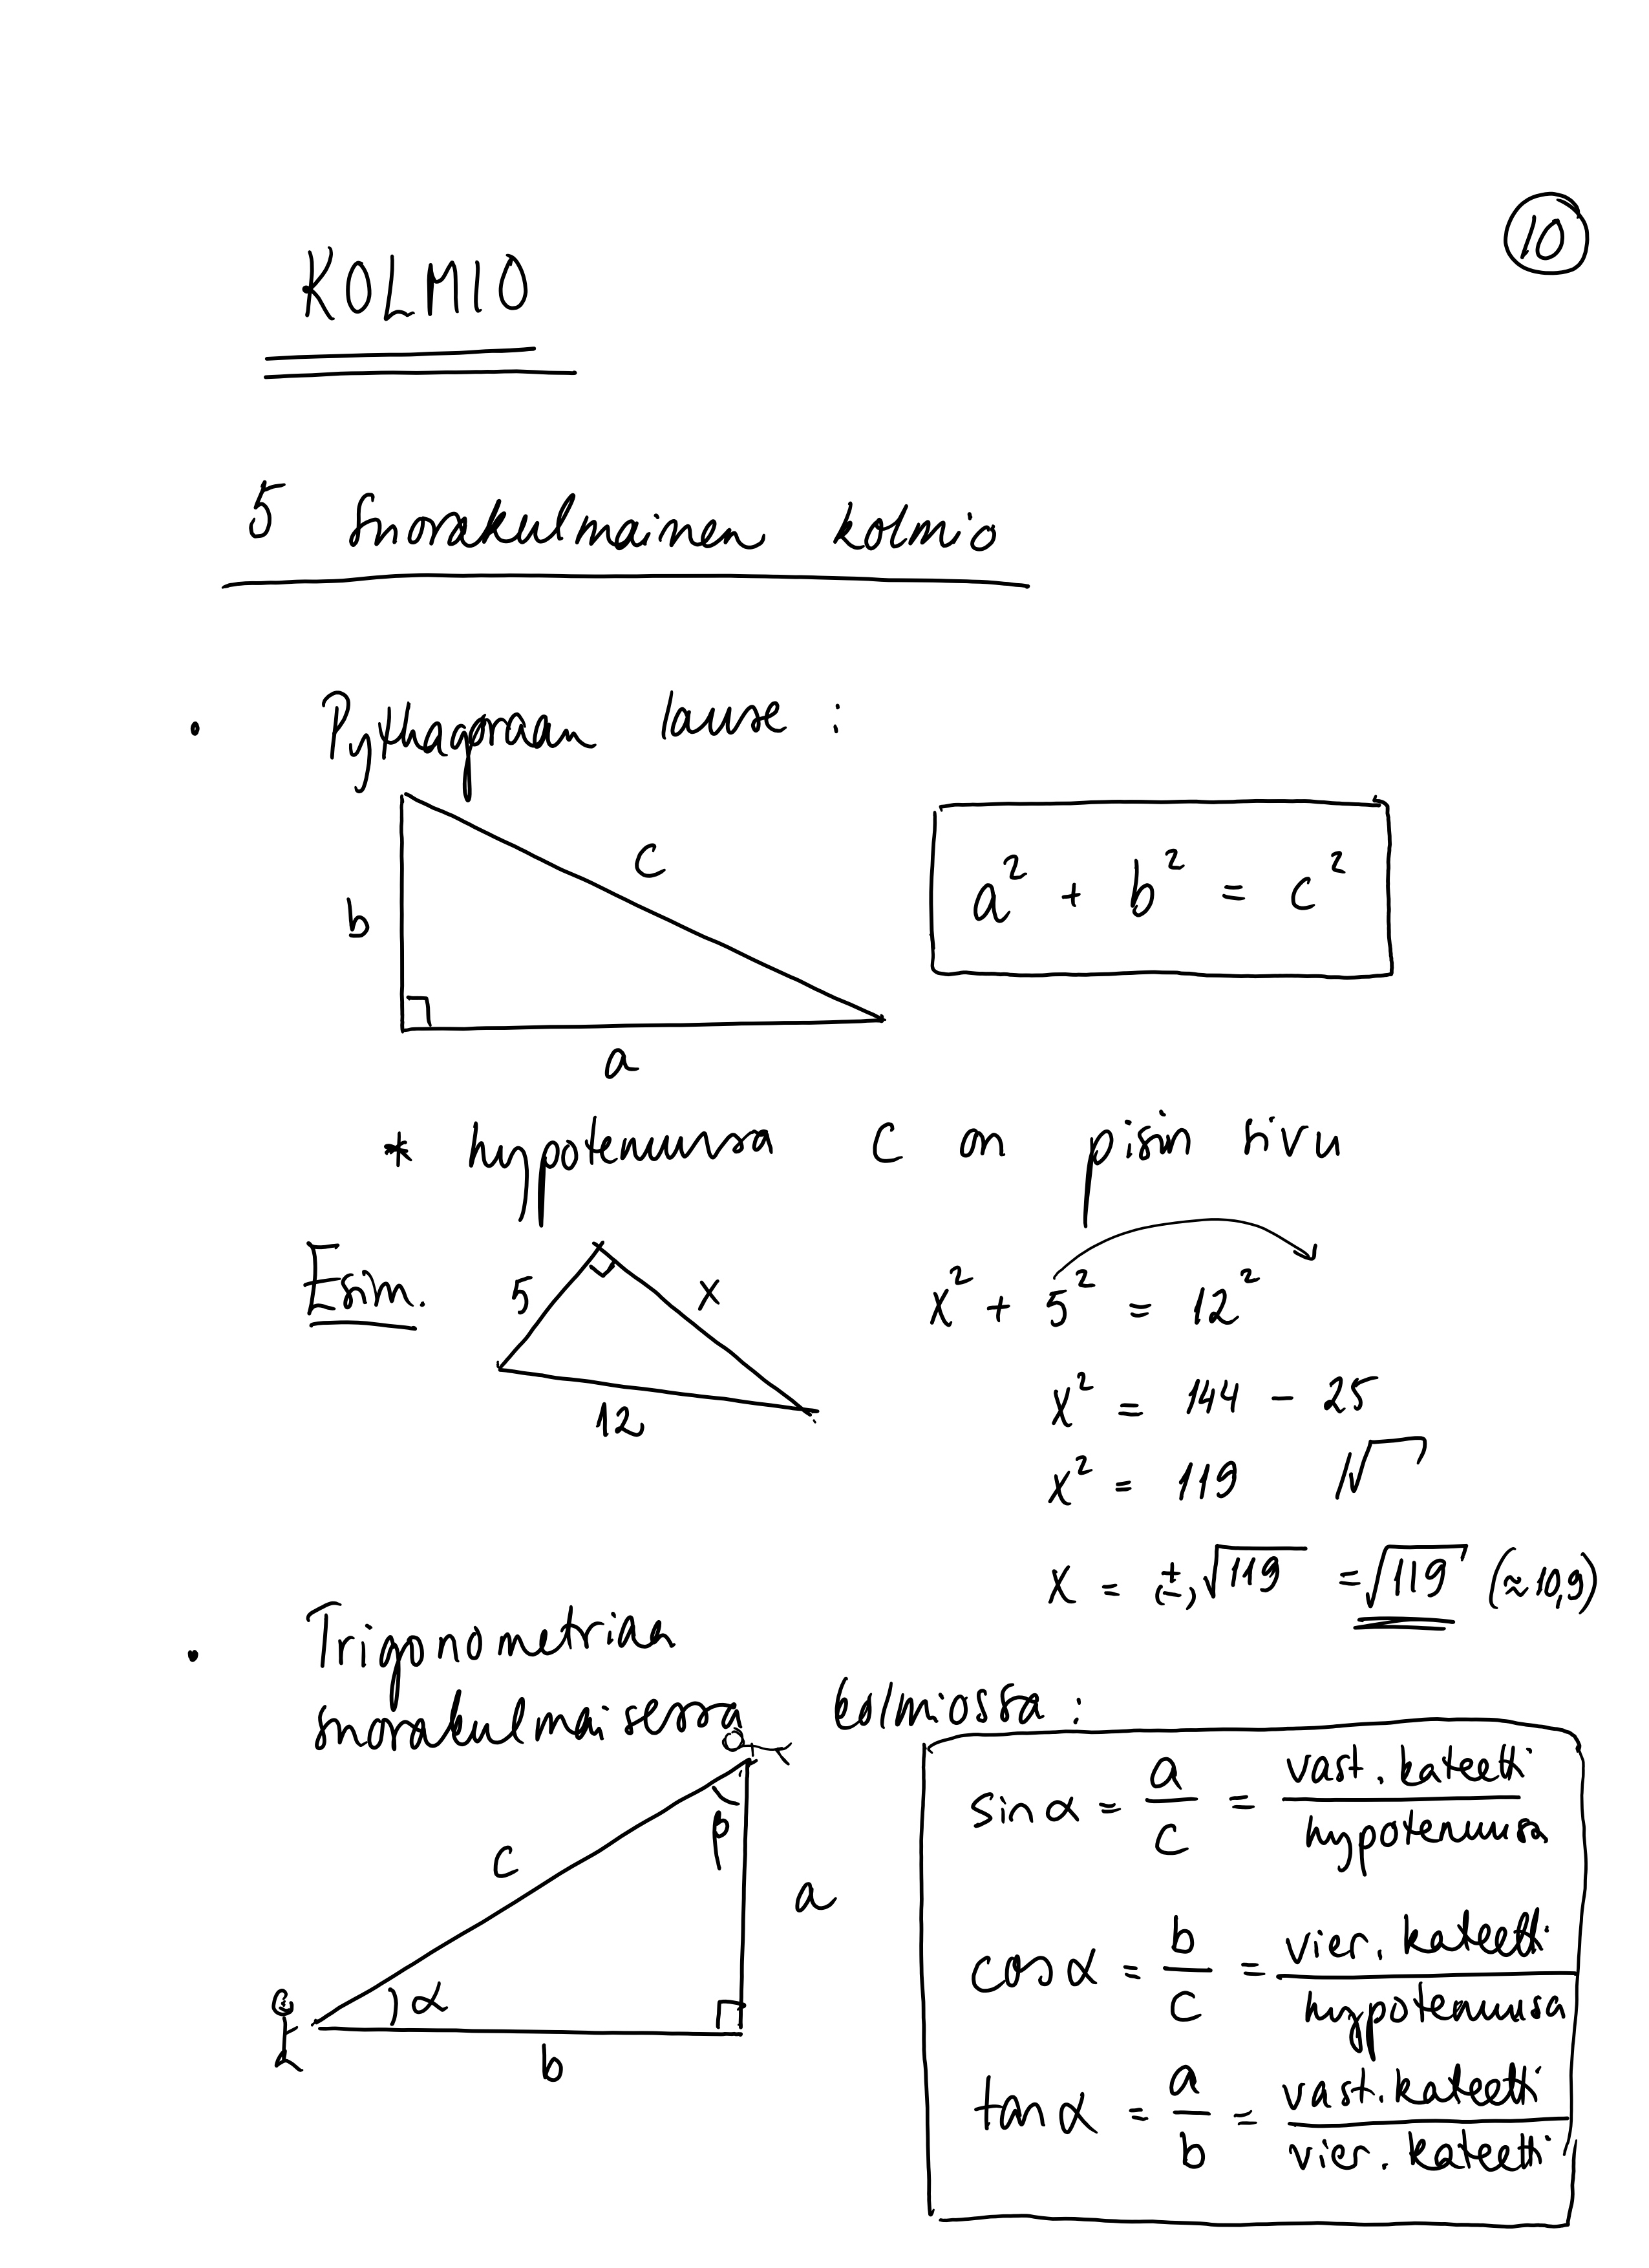 10
KOLMIO
5 Suorakulmainen kolmio
• Pythagoraan lause :
c
b
a
a² + b² = c²
* hypotenuusa c on pisin sivu
Esim.
5
x
12
x² + 5² = 12²
x² = 144 - 25
x² = 119 |√
x = (±)√119 = √119 (≈10,9)
• Trigonometriaa
suorakulmaisessa kolmiossa :
β
c
a
α
b
sin α = a/c = vast. kateetti/hypotenuusa
cos α = b/c = vier. kateetti/hypotenuusa
tan α = a/b = vast. kateetti/vier. kateetti